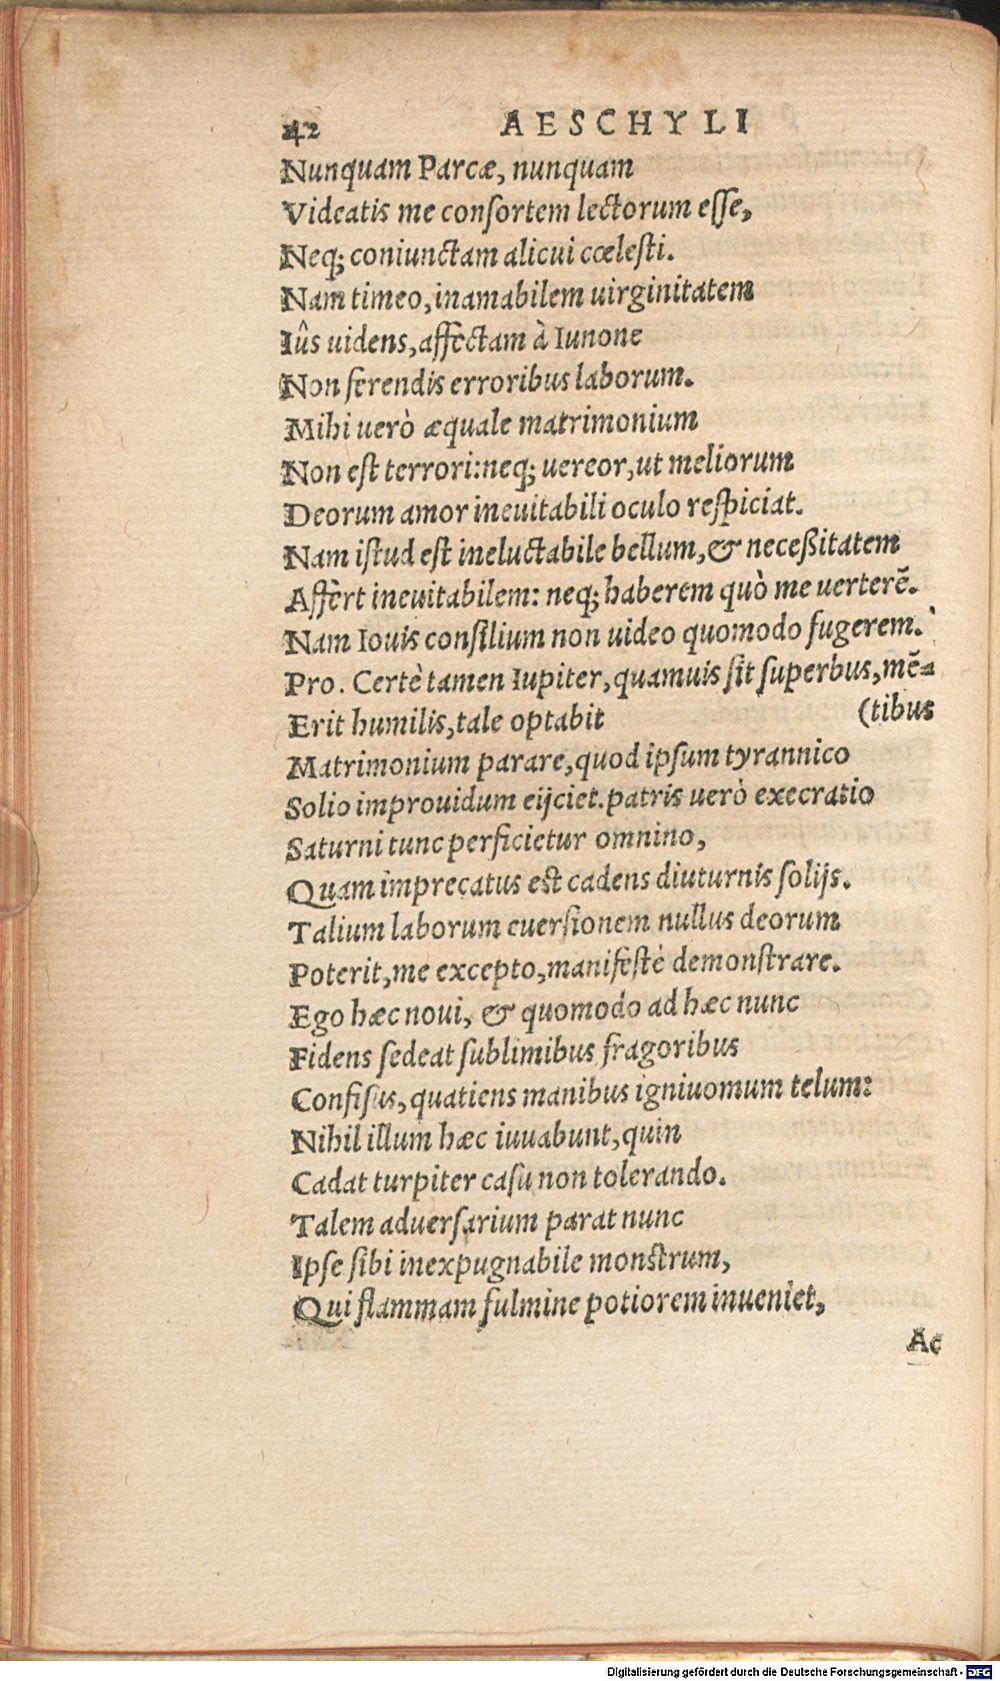 42 AESCHYLI
Nunquam Parcæ, nunquam
Videatis me conſortem lectorum eſſe,
Neq; coniunctam alicui cœleſti.
Nam timeo, inamabilem uirginitatem
Iûs uidens, affectam à Iunone
Non ferendis erroribus laborum.
Mihi uerò æquale matrimonium
Non eſt terrori: neq; uereor, ut meliorum
Deorum amor ineuitabili oculo reſpiciat.
Nam iſtud eſt ineluctabile bellum, & neceßitatem
Affert ineuitabilem: neq; haberem quò me uerterē.
Nam Iouis conſilium non uideo quomodo fugerem.
Pro. Certè tamen Iupiter, quamuis ſit ſuperbus, mē-
Erit humilis, tale optabit (tibus
Matrimonium parare, quod ipſum tyrannico
Solio improuidum eijciet. patris uerò execratio
Saturni tunc perficietur omnino,
Quam imprecatus eſt cadens diuturnis ſolijs.
Talium laborum euerſionem nullus deorum
Poterit, me excepto, manifeſtè demonſtrare.
Ego hæc noui, & quomodo ad hæc nunc
Fidens ſedeat ſublimibus fragoribus
Confiſus, quatiens manibus igniuomum telum:
Nihil illum hæc iuuabunt, quin
Cadat turpiter caſu non tolerando.
Talem aduerſarium parat nunc
Ipſe ſibi inexpugnabile monſtrum,
Qui flammam fulmine potiorem inueniet,
Ac
Digitalisierung gefördert durch die Deutsche Forschungsgemeinschaft - DFG